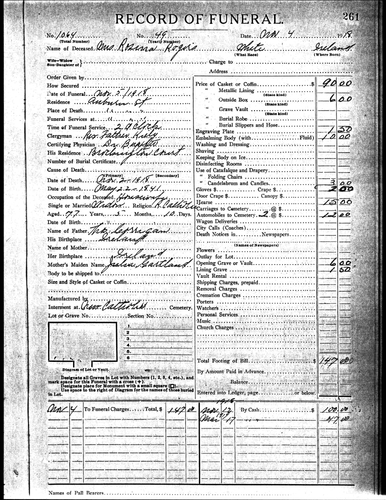 RECORD OF FUNERAL.
261
No. 1064 No. 49 Date Nov. 4 1918
(Total Number) (Yearly Number)
Name of Deceased Mrs. Rosina Rogers White Ireland
(What Born) (Where Born)
Wife—Widow
Son—Daughter of Charge to
Address
Order Given by
How Secured
Date of Funeral Nov. 5/1918
Residence Auburn St
Place of Death
Funeral Services at
Time of Funeral Service 2 O'Clock
Clergyman Rev. Father
Certifying Physician Dr.
His Residence Court
Number of Burial Certificate
Cause of Death
(Primary) (Secondary)
Date of Death Nov. 2-1918
Date of Birth May 22-1841
Occupation of the Deceased Housewife
Single or Married Widow Religion R. Catholic
Aged 77 Years 5 Months 10 Days
Name of Father
His Birthplace Ireland
Name of Mother
Her Birthplace Ireland
Mother's Maiden Name Gartland
Body to be shipped to
Size and Style of Casket or Coffin
Manufactured by
Interment at Catholic Cemetery
Lot or Grave No. Section No.
Diagram of Lot or Vault
Designate all Graves in Lot with Numbers (1, 2, 3, 4, etc.), and
mark space for this Funeral with a cross (+).
Designate place for Monument with a small square
Use space to the right of Diagram for the names of those buried
in Lot.
Price of Casket or Coffin $ 90.00
" Metallic Lining
(State kind)
" Outside Box 6.00
(State kind)
" Grave Vault
(State kind)
" Burial Robe
" Burial Slippers and Hose
Engraving Plate .50
Embalming Body (with Fluid) 10.00
Washing and Dressing
Shaving
Keeping Body on Ice
Disinfecting Rooms
Use of Catafalque and Drapery
" Folding Chairs
" Candelabrum and Candles 3.00
Gloves $ Crape $ 2.00
Door Crape Canopy $
Hearse 15.00
Carriages to Cemetery @ $
Automobiles to Cemetery 2 @ $ 12.00
Wagon Deliveries
City Calls (Coaches)
Death Notices in Newspapers
(Names of Newspapers)
Flowers
Outlay for Lot
Opening Grave or Vault 6.00
Lining Grave
Vault Rental
Shipping Charges, prepaid
Removal Charges
Cremation Charges
Porters
Watchers
Personal Services
Music
Church Charges
Total Footing of Bill $ 147.00
By Amount Paid in Advance
Balance
Entered into Ledger, page or below.
Nov. 4 To Funeral Charges Total, $ 147.00
1918
Nov. By Cash $ 100.00
17 " " 47.00
Names of Pall Bearers